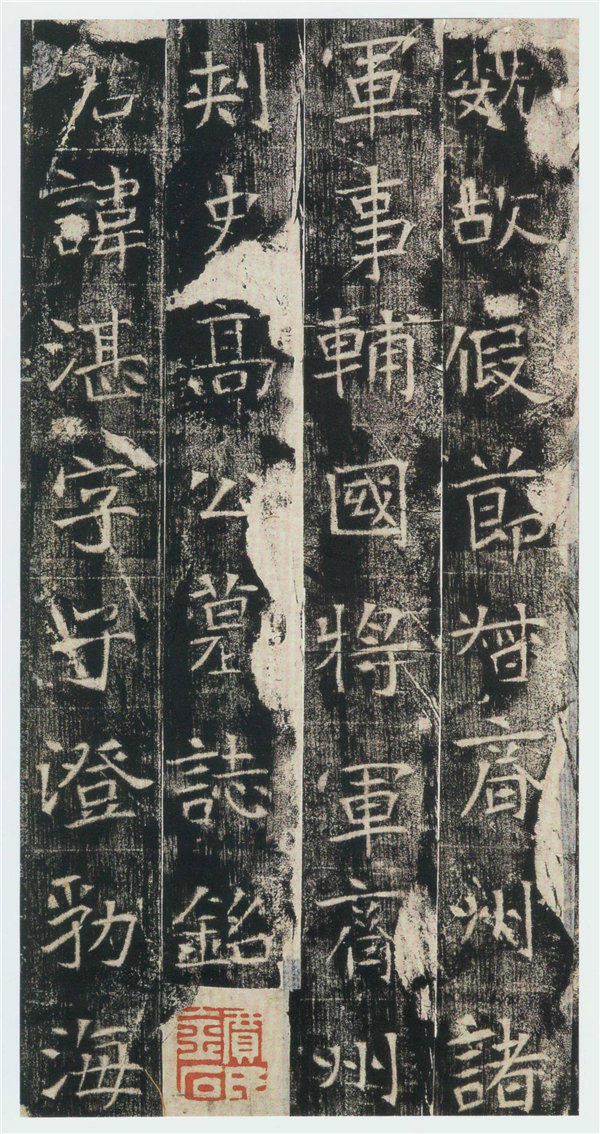 魏故假節督齊州諸
軍事輔國將軍齊州
刺史高公墓誌銘
君諱湛字子澄勃海